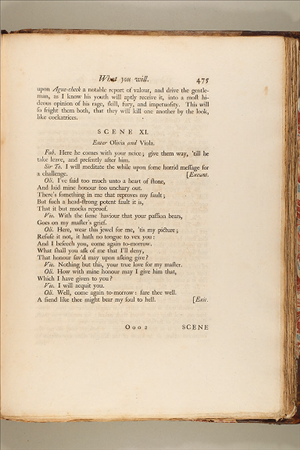 What you will. 475
upon Ague-cheek a notable report of valour, and drive the gentle-
man, as I know his youth will aptly receive it, into a most hi-
deous opinion of his rage, skill, fury, and impetuosity. This will
so fright them both, that they will kill one another by the look,
like cockatrices.
SCENE XI.
Enter Olivia and Viola.
Fab. Here he comes with your neice; give them way, 'till he
take leave, and presently after him.
Sir To. I will meditate the while upon some horrid message for
a challenge. [Exeunt.
Oli. I've said too much unto a heart of stone,
And laid mine honour too unchary out.
There's something in me that reproves my fault;
But such a head-strong potent fault it is,
That it but mocks reproof.
Vio. With the same haviour that your passion bears,
Goes on my master's grief.
Oli. Here, wear this jewel for me, 'tis my picture;
Refuse it not, it hath no tongue to vex you:
And I beseech you, come again to-morrow.
What shall you ask of me that I'll deny,
That honour sav'd may upon asking give?
Vio. Nothing but this, your true love for my master.
Oli. How with mine honour may I give him that,
Which I have given to you?
Vio. I will acquit you.
Oli. Well, come again to-morrow: fare thee well.
A fiend like thee might bear my soul to hell. [Exit.
Ooo 2 SCENE